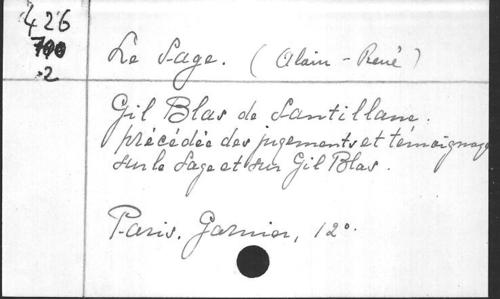 426
700
2
Le Sage. (Alain-René)
Gil Blas de Santillane.
précédée des jugements et témoignages
sur le Sage et sur Gil Blas.
Paris. Garnier, 12°.